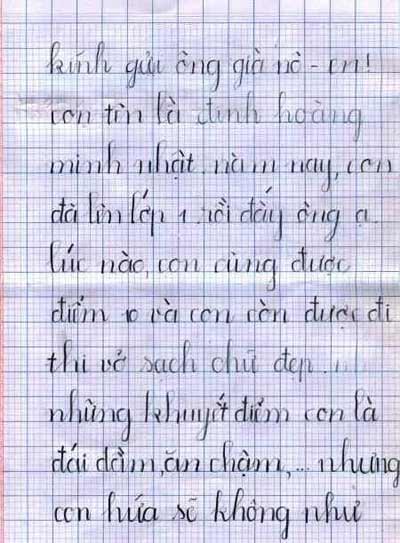 kính gửi ông già nô-en!
con tên là đinh hoàng
minh nhật. năm nay, con
đã lên lớp 1 rồi đấy ông ạ.
lúc nào, con cũng được
điểm 10 và con còn được đi
thi vở sạch chữ đẹp.
những khuyết điểm con là
đái dầm, ăn chậm,... nhưng
con hứa sẽ không như